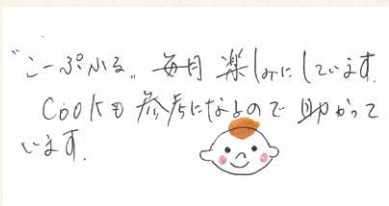 "こーぷる〟毎月楽しみにしています。
Cookも参考になるので助かって
います。